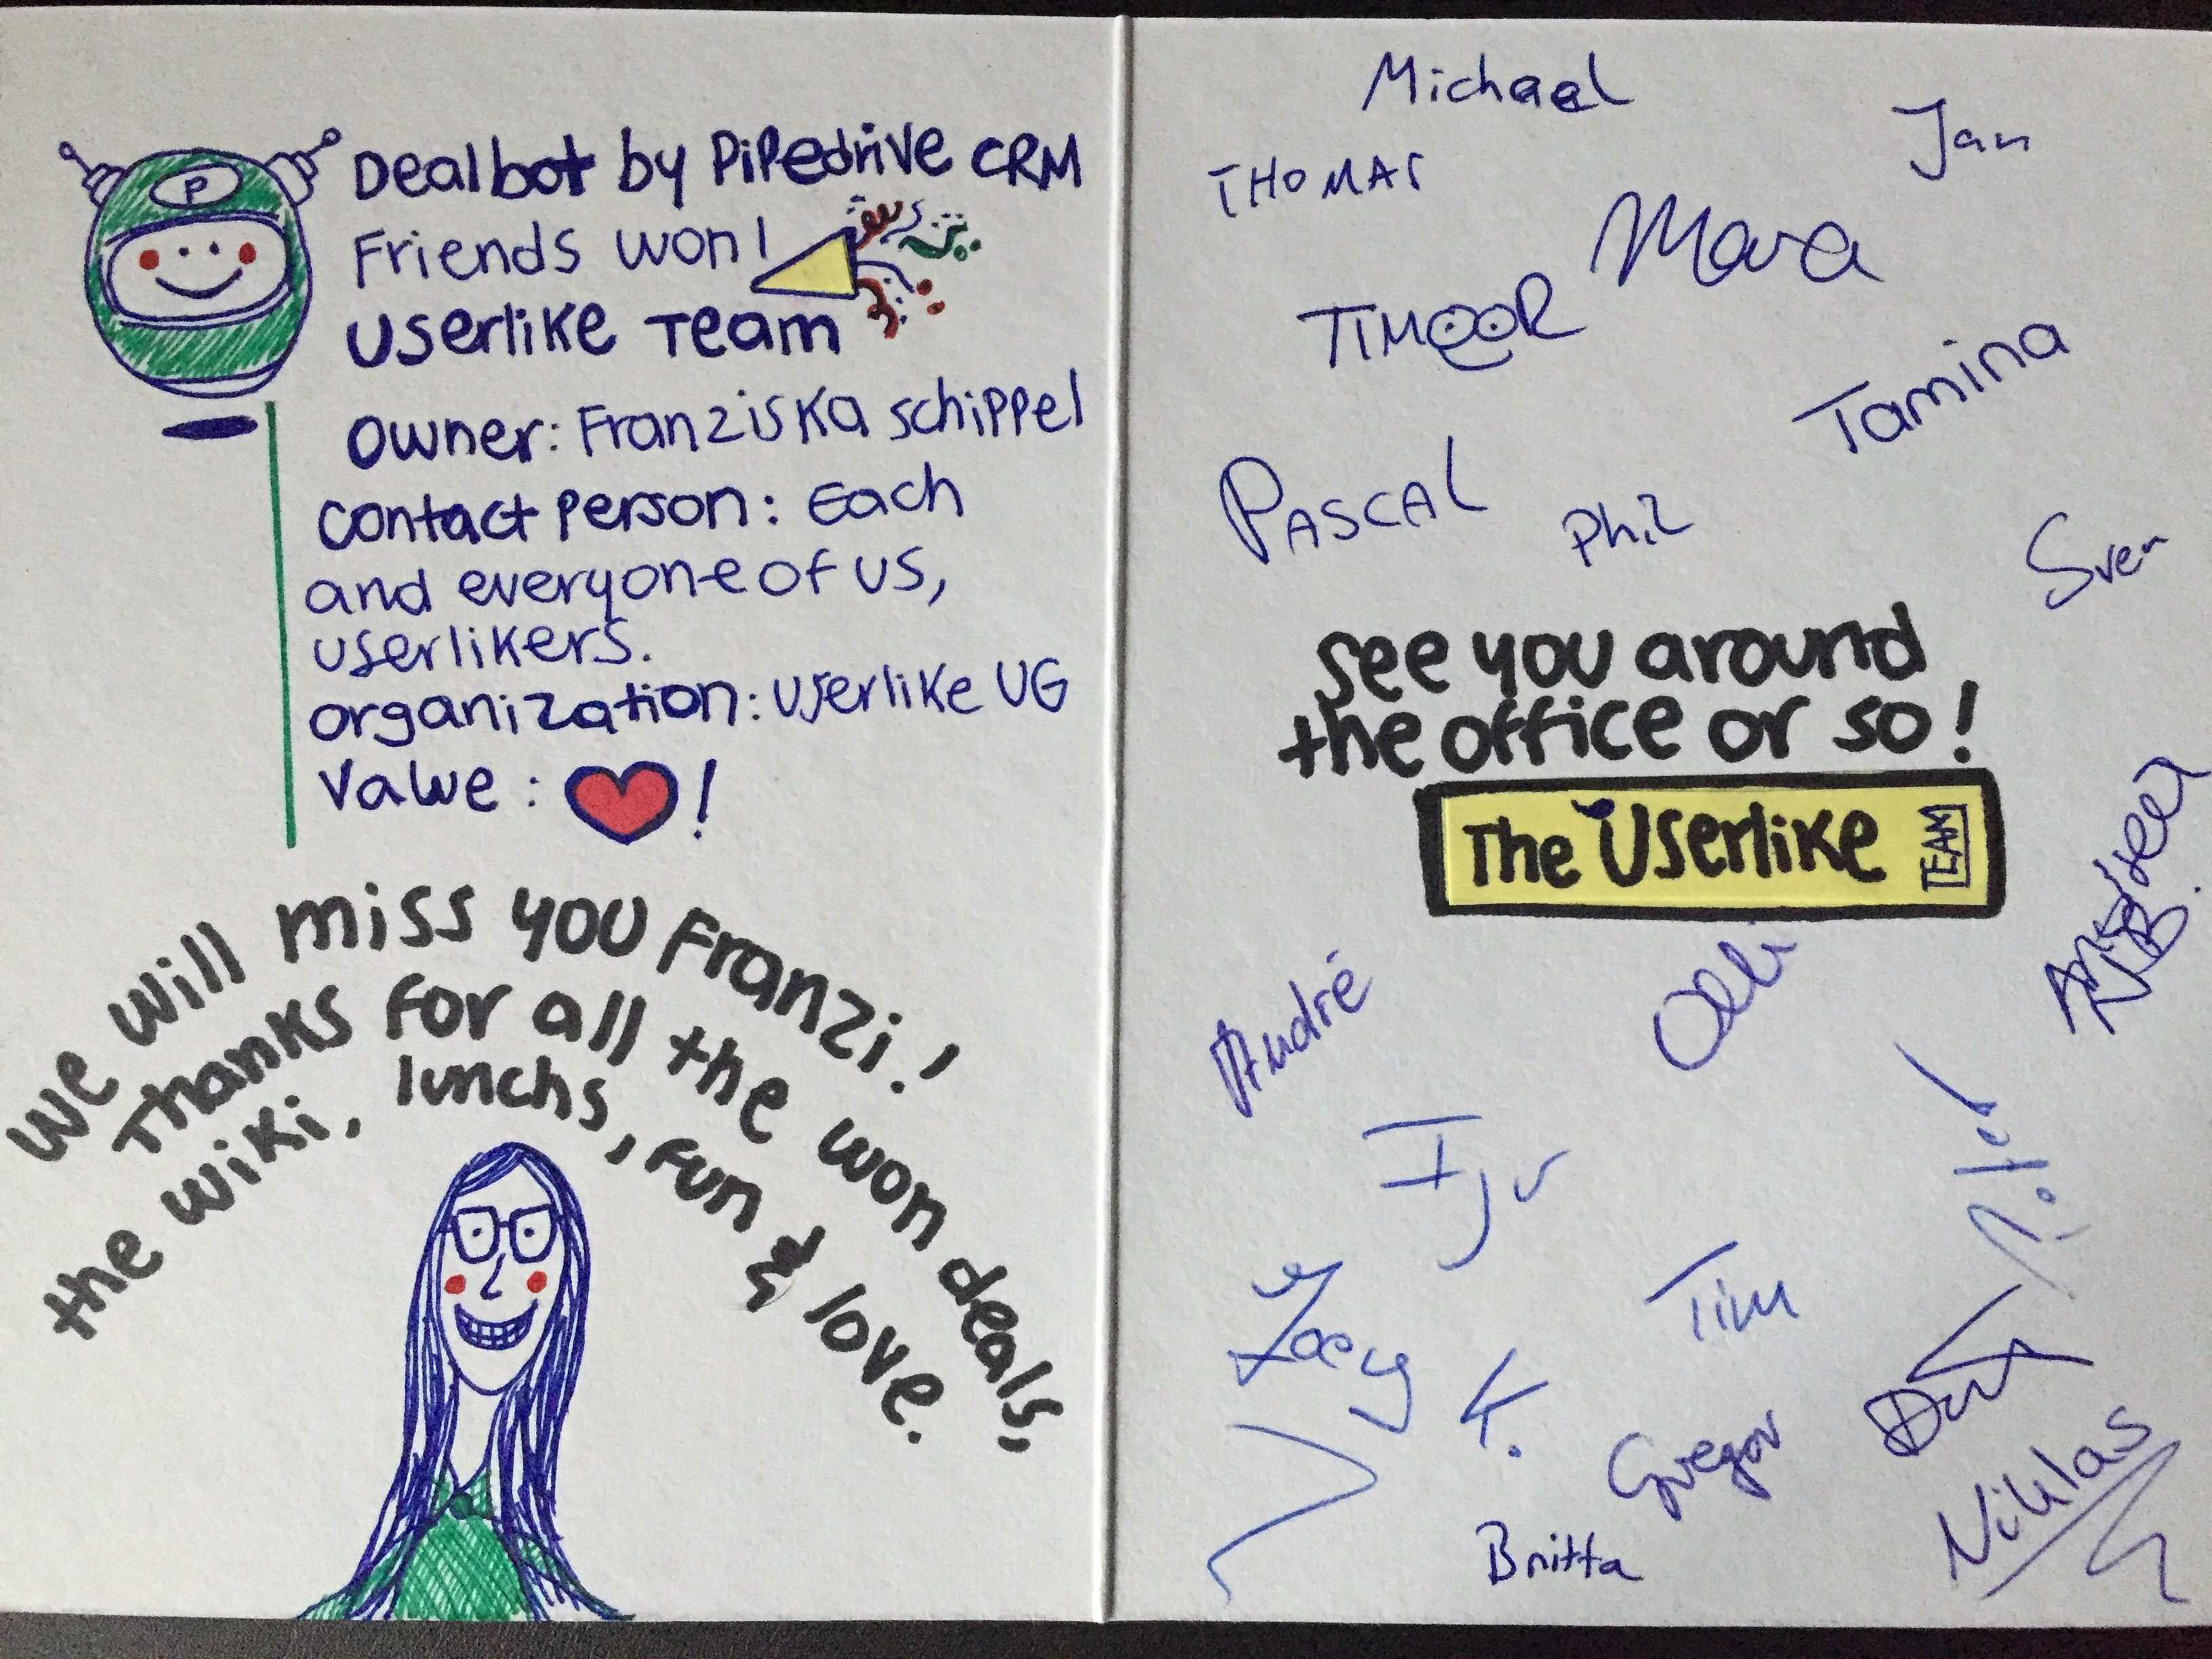 P
Dealbot by Pipedrive CRM
Friends won!
Userlike Team
Owner: Franziska Schippel
Contact Person: Each
and everyone of us,
userlikers.
organization: Userlike UG
Value: ❤!
We will miss you Franzi!
Thanks for all the won deals,
the wiki, lunchs, fun & love.
Michael
Jan
THOMAS
Mara
TIMOOR
Tamina
PASCAL
Phil
Sven
See you around
the office or so!
The Userlike TEAM
André
Olli
Tim
K.
Gregor
Niklas
Britta